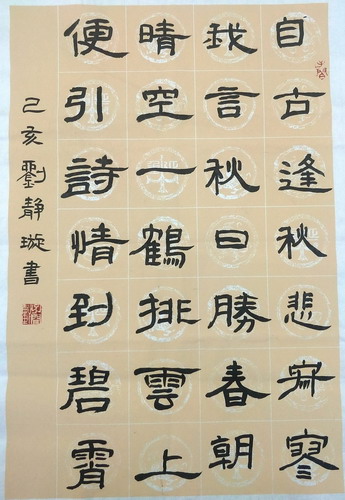 自古逢秋悲寂寥
我言秋日勝春朝
晴空一鶴排雲上
便引詩情到碧霄
己亥劉靜璇書